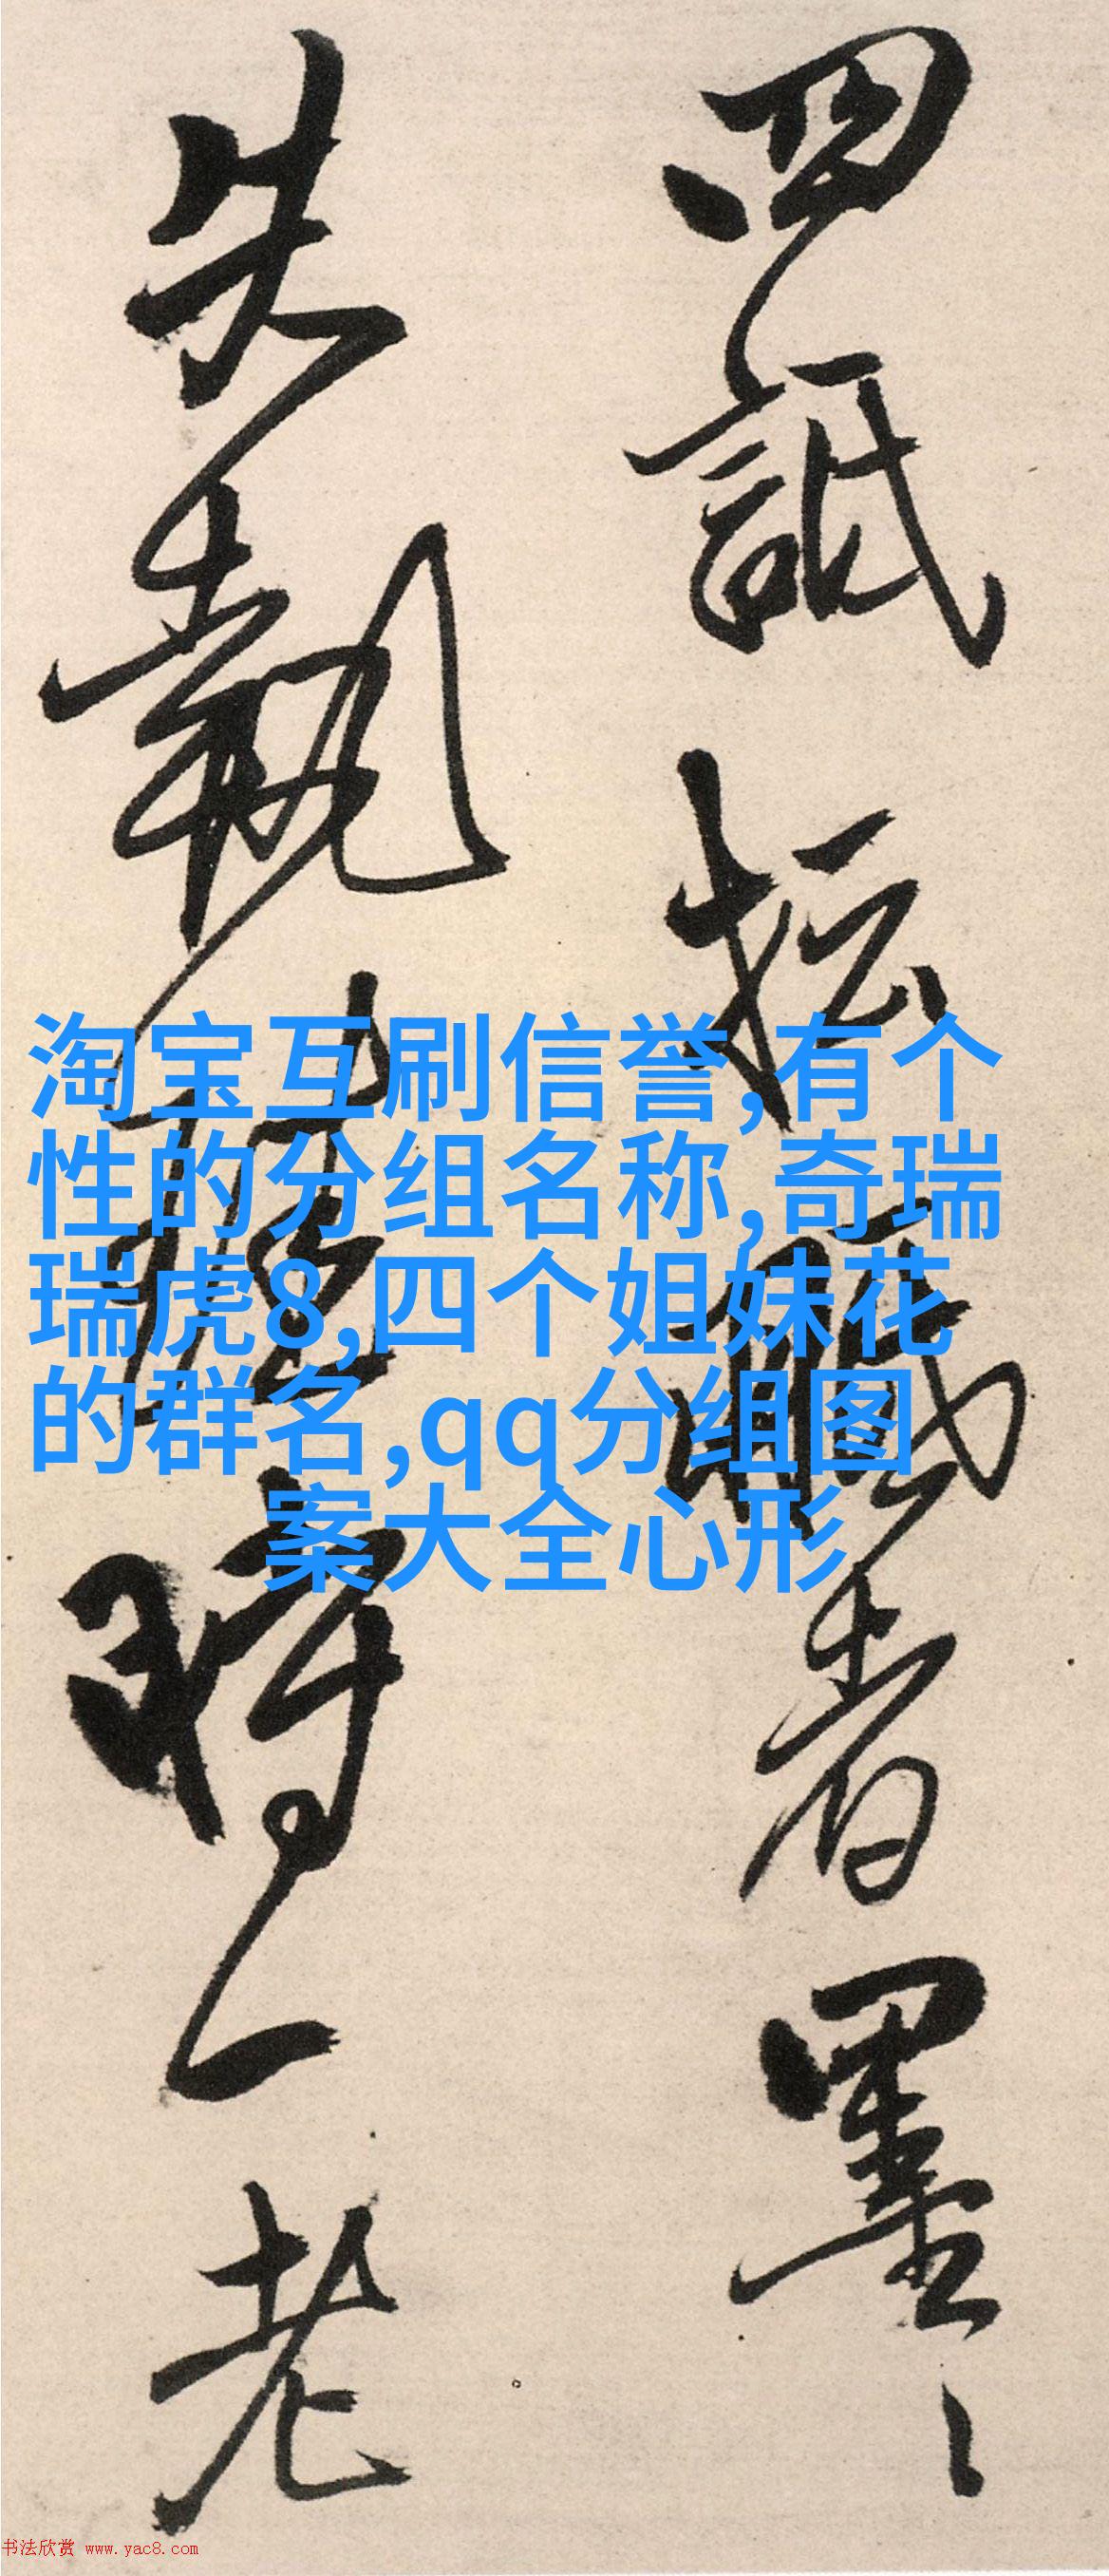 四詆抎職者墨
失執
時一老
淘宝互刷信誉,有个
性的分组名称,奇瑞
瑞虎8,四个姐妹花
的群名,qq分组图
案大全心形
书法欣赏 www.yac8.com